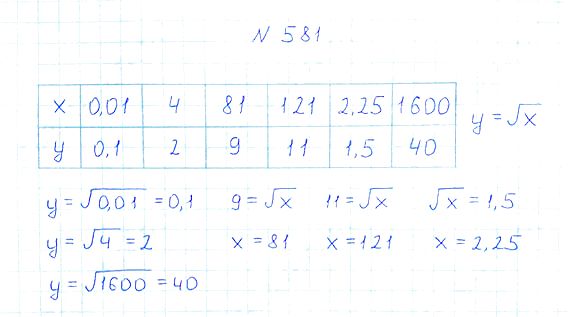 N 581
x 0,01 4 81 121 2,25 1600
y = √x
y 0,1 2 9 11 1,5 40
y = √0,01 = 0,1 9 = √x 11 = √x √x = 1,5
y = √4 = 2 x = 81 x = 121 x = 2,25
y = √1600 = 40